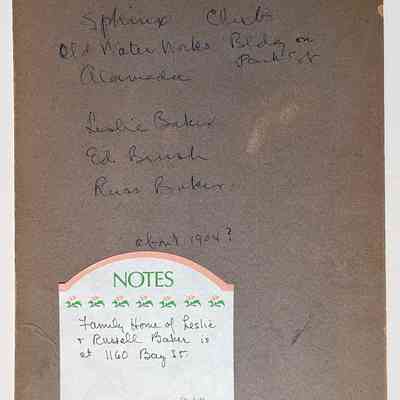 Sphinx Club
Old Water Works Bldg on
Park St
Alameda
Leslie Baker
Ed Brush
Russ Baker
about 1904?
NOTES
Family Home of Leslie
& Russell Baker is
at 1160 Bay St.